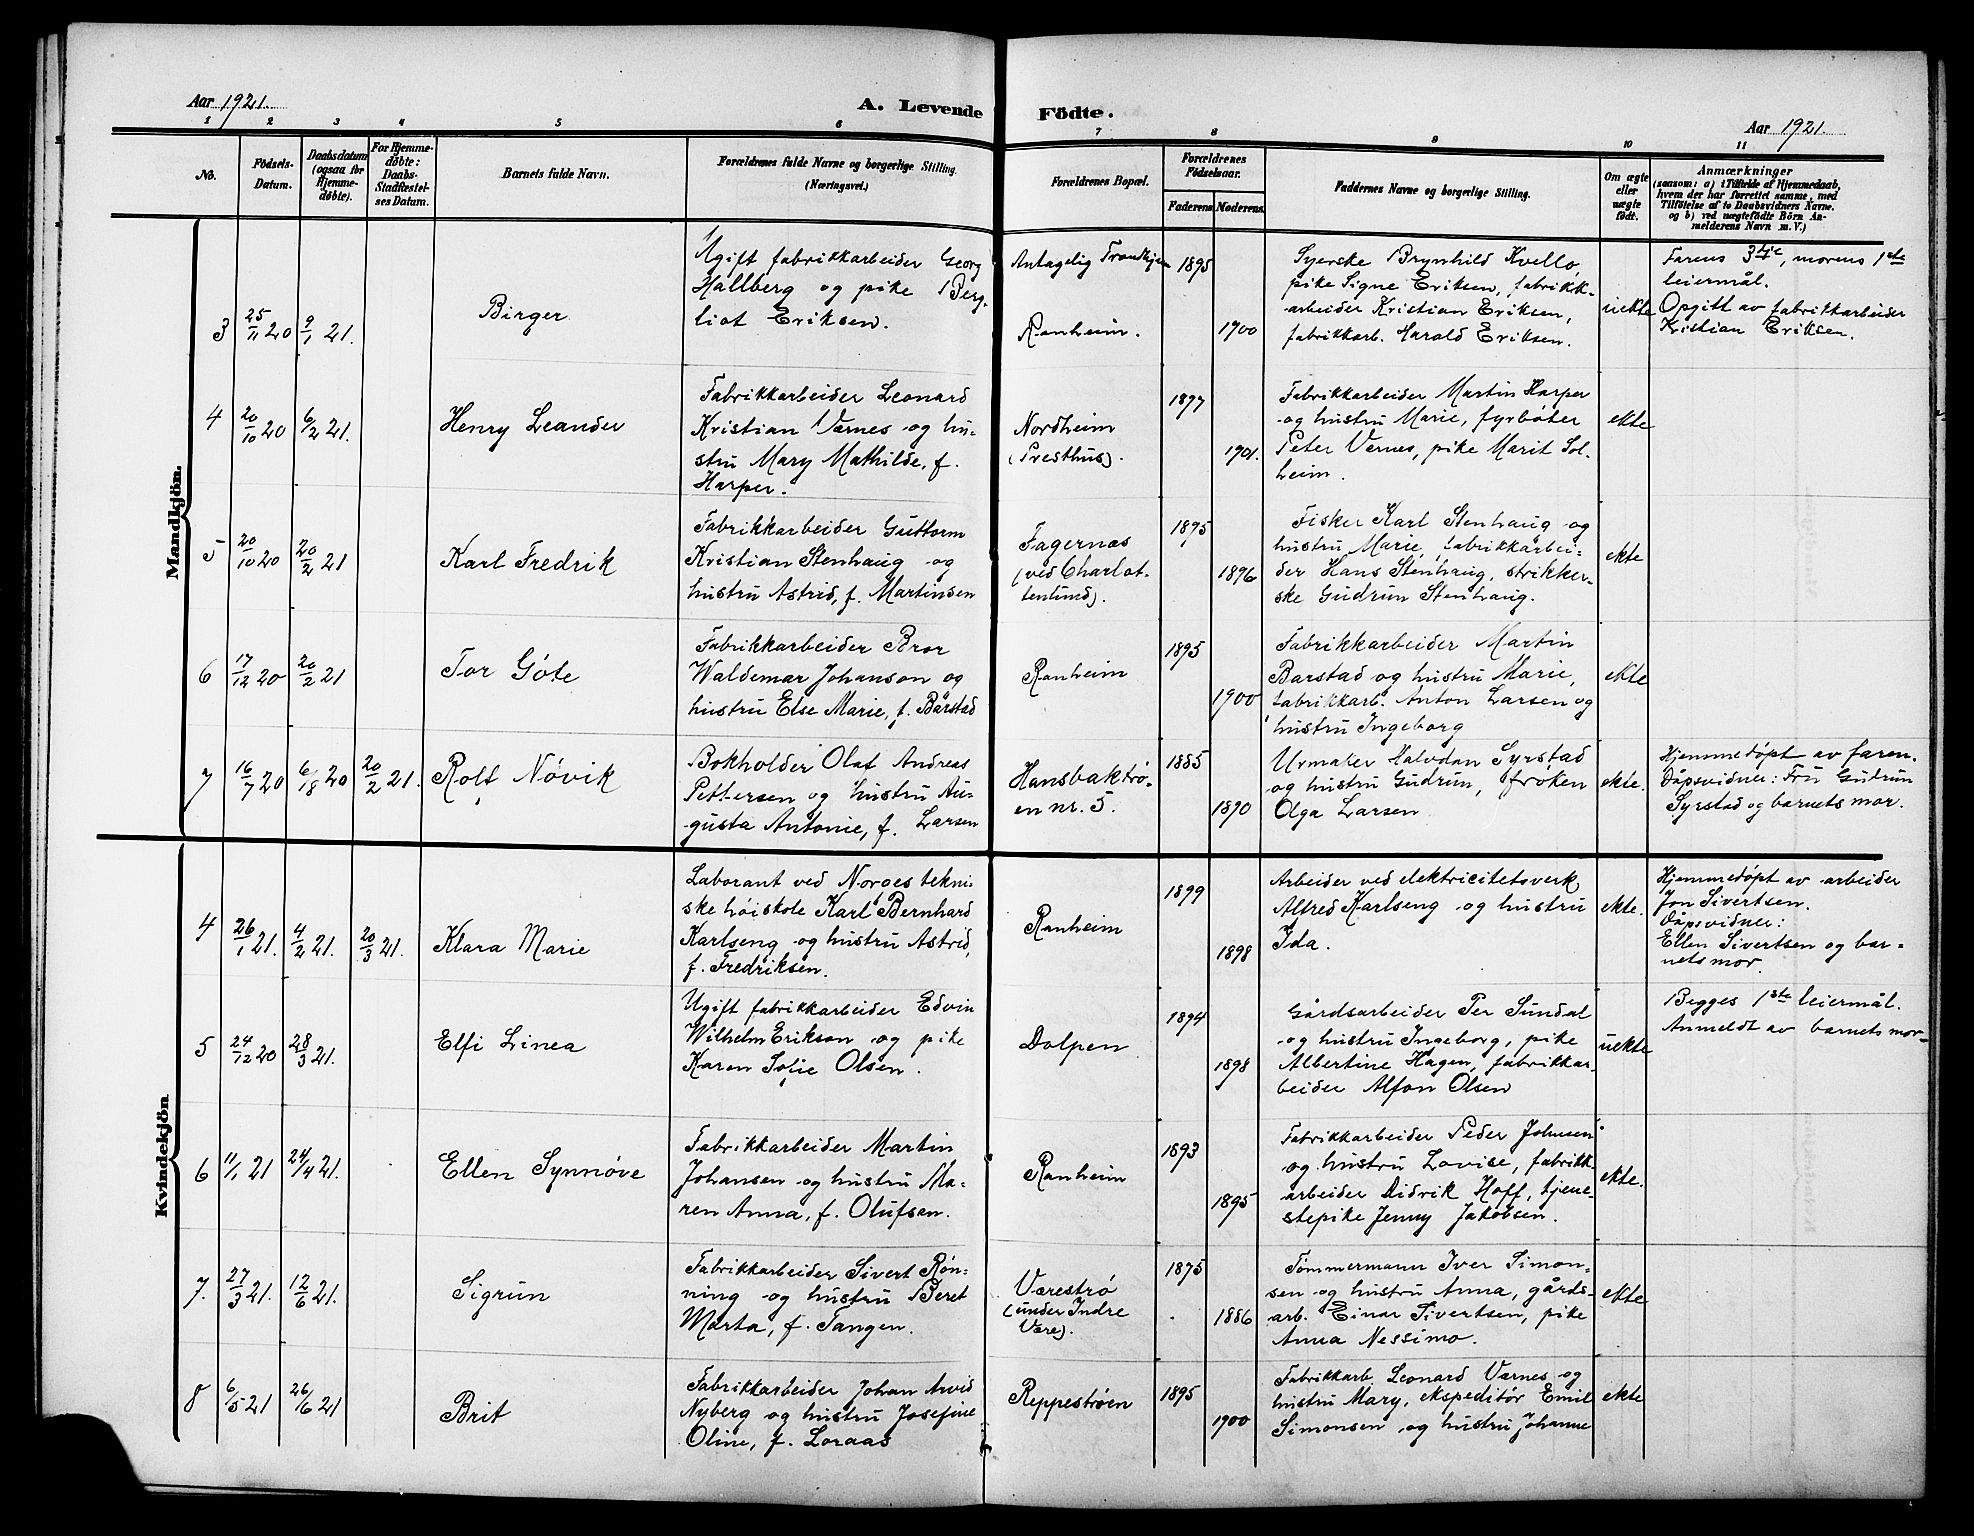 Aar 1921.
A. Levende Födte.
Aar 1921.
1 2 3 4 5 6 7 8 9 10 11
No.
Födsels-Datum.
Daabsdatum (ogsaa for Hjemme-døbte).
For Hjemme-døbte: Daabs-Stadfæstel-ses Datum.
Barnets fulde Navn.
Forældrenes fulde Navne og borgerlige Stilling.
(Næringsvei.)
Forældrenes Bopæl.
Forældrenes Födselsaar.
Faderens. Moderens.
Faddernes Navne og borgerlige Stilling.
Om ægte eller uægte födt.
Anmærkninger
(saasom: a) i Tilfælde af Hjemmedaab,
hvem der har forrettet samme, med
Tilföielse af to Daabsvidners Navne.
og b) ved uægtefödte Börn An-
melderens Navn m. V.)
Mandkjön.
3 25/11 20 9/1 21. Birger
Ugift fabrikkarbeider Georg
Hallberg og pike Berg-
liot Eriksen.
Antagelig Trondhjem
Ranheim.
1895
1900
Syerske Brynhild Kvello,
pike Signe Eriksen, fabrikk-
arbeider Kristian Eriksen,
fabrikkarb. Harald Eriksen.
uekte
Farens 3dje, morens 1ste
leiermål.
Opgitt av fabrikkarbeider
Kristian Eriksen.
4 20/10 20 6/2 21. Henry Leander
Fabrikkarbeider Leonard
Kristian Værnes og hu-
stru Mary Mathilde, f.
Harper.
Nordheim
(Presthus).
1897
1901.
Fabrikkarbeider Martin Harper
og hustru Marie, fyrbøter
Peter Værnes, pike Marit Sol-
heim.
ekte
5 20/10 20 20/2 21 Karl Fredrik
Fabrikkarbeider Guttorm
Kristian Stenhaug og
hustru Astrid, f. Martinsen
Fagernæs
(ved Charlot-
tenlund).
1895
1896
Fisker Karl Stenhaug og
hustru Marie, fabrikkarbei-
der Hans Stenhaug, strikker-
ske Gudrun Stenhaug.
ekte
6 17/12 20 20/2 21 Tor Göte
Fabrikkarbeider Bror
Waldemar Johanson og
hustru Else Marie, f. Barstad
Ranheim
1895
1900
Fabrikkarbeider Martin
Barstad og hustru Marie,
fabrikkarb. Anton Larsen og
hustru Ingeborg
ekte
7 16/7 20 6/18 20 20/2 21. Rolf Nøvik
Bokholder Olaf Andreas
Pettersen og hustru Au-
gusta Antonie, f. Larsen
Hansbaktrø-
en nr. 5.
1885
1890
Urmaker Halvdan Syrstad
og hustru Gudrun, frøken
Olga Larsen
ekte.
Hjemmedøpt av faren.
Dåpsvidner: Fru Gudrun
Syrstad og barnets mor.
Kvindekjön
4 26/1 21. 4/2 21. 20/3 21. Klara Marie
Laborant ved Norges tekni-
ske høiskole Karl Bernhard
Karlseng og hustru Astrid,
f. Fredriksen.
Ranheim
1899
1898
Arbeider ved elektricitetsverk
Alfred Karlseng og hustru
Ida.
ekte.
Hjemmedøpt av arbeider
Jon Sivertsen.
Dåpsvidner:
Ellen Sivertsen og bar-
nets mor.
5 24/12 20 28/3 21. Elfi Linea
Ugift fabrikkarbeider Edvin
Wilhelm Erikson og pike
Karen Sofie Olsen.
Dolpen
1894
1898
Gårdsarbeider Per Sundal
og hustru Ingeborg, pike
Albertine Hagen, fabrikkar-
beider Alfon Olsen
uekte
Begges 1ste leiermål.
Anmeldt av barnets mor
6 11/1 21 24/4 21. Ellen Synnøve
Fabrikkarbeider Martin
Johansen og hustru Ma-
ren Anna, f. Olufsen.
Ranheim
1893
1895
Fabrikkarbeider Peder Johnsen
og hustru Lovise, fabrikk-
arbeider Didrik Hoff, tjene-
stepike Jenny Jakobsen.
ekte.
7. 27/3 21. 12/6 21. Sigrun
Fabrikkarbeider Sivert Røn-
ning og hustru Beret
Marta, f. Tangen.
Værestrø
(under Indre
Være).
1875
1886
Tømmermann Iver Simon-
sen og hustru Anna, gårds-
arb. Einar Sivertsen, pike
Anna Nessimo.
ekte
8 6/5 21 26/6 21 Brit
Fabrikkarbeider Johan Arvid
Nyberg og hustru Josefine
Oline, f. Loraas
Reppestrøen
1895
1900
Fabrikkarb. Leonard Værnes og
hustru Mary, ekspeditør Emil
Simonsen og hustru Johanne
ekte